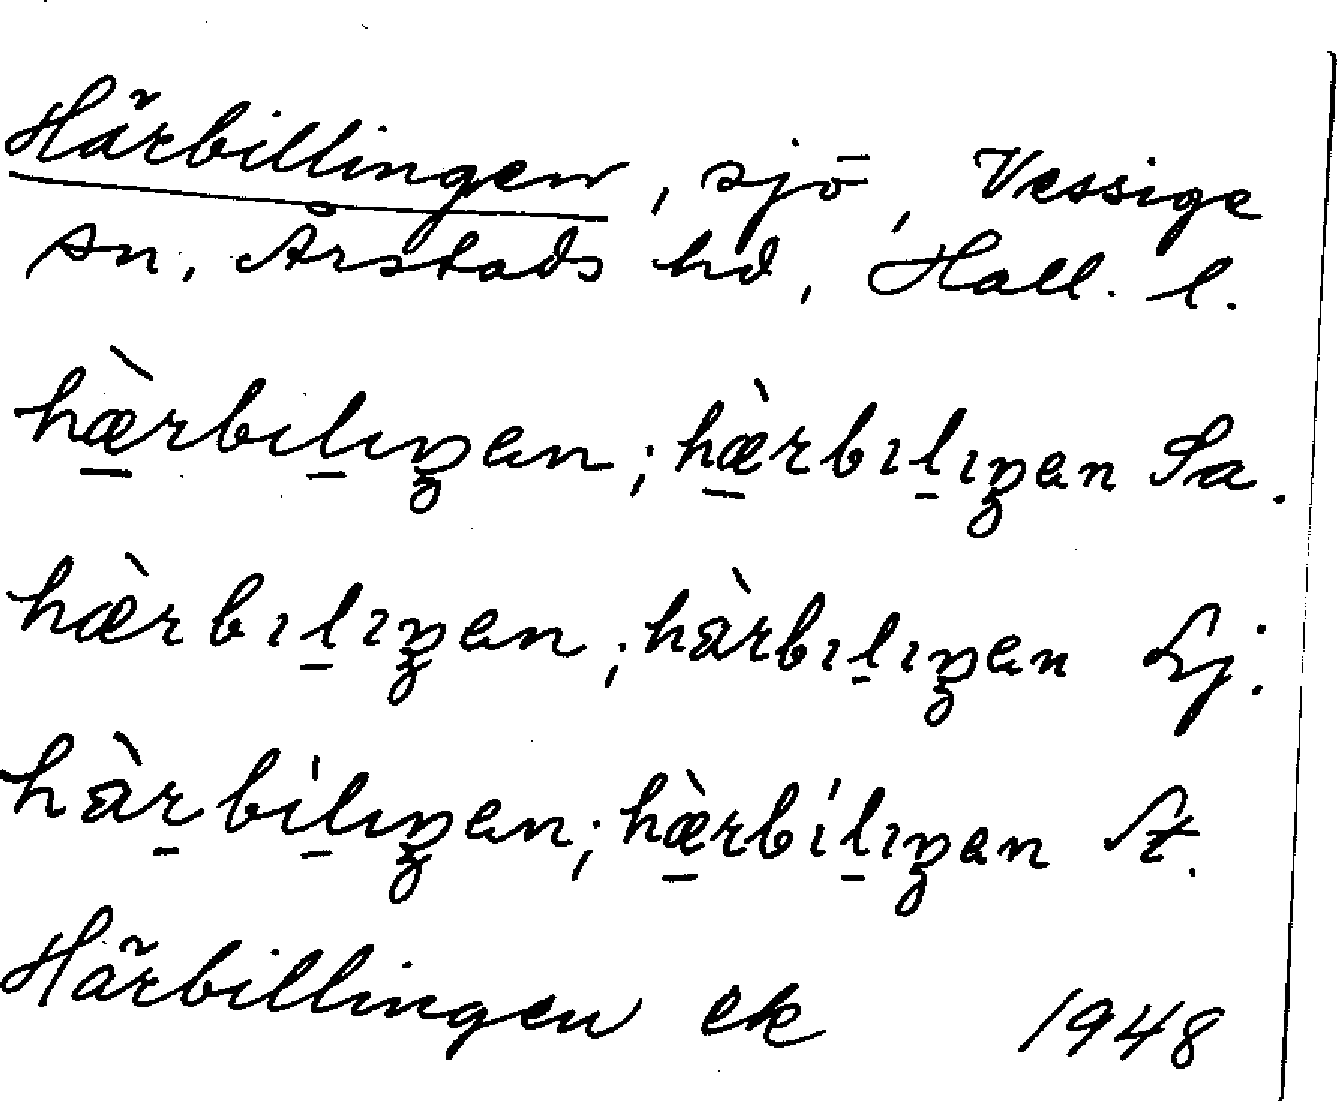 Härbillingen, sjö, Vessige
sn, Årstads hd, Hall. l.
hæ̀rbılıŋən; hæ̀rbılıŋən Sa.
hæ̀rbılıŋən; hàrbılıŋən Lj.
hàrbílıŋən; hæ̀rbílıŋən St.
Härbillingen ek 1948